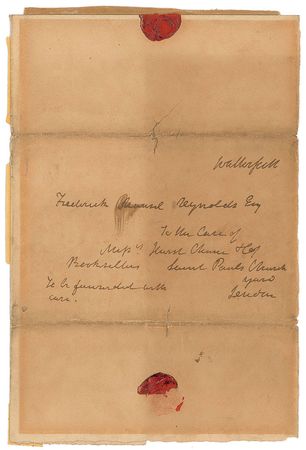 Walter Scott
Frederick Mansel Reynolds Esq
To the Care of
Messrs Hurst Chance & Co
Booksellers Saint Pauls Church
To be forwarded with yard
care. London